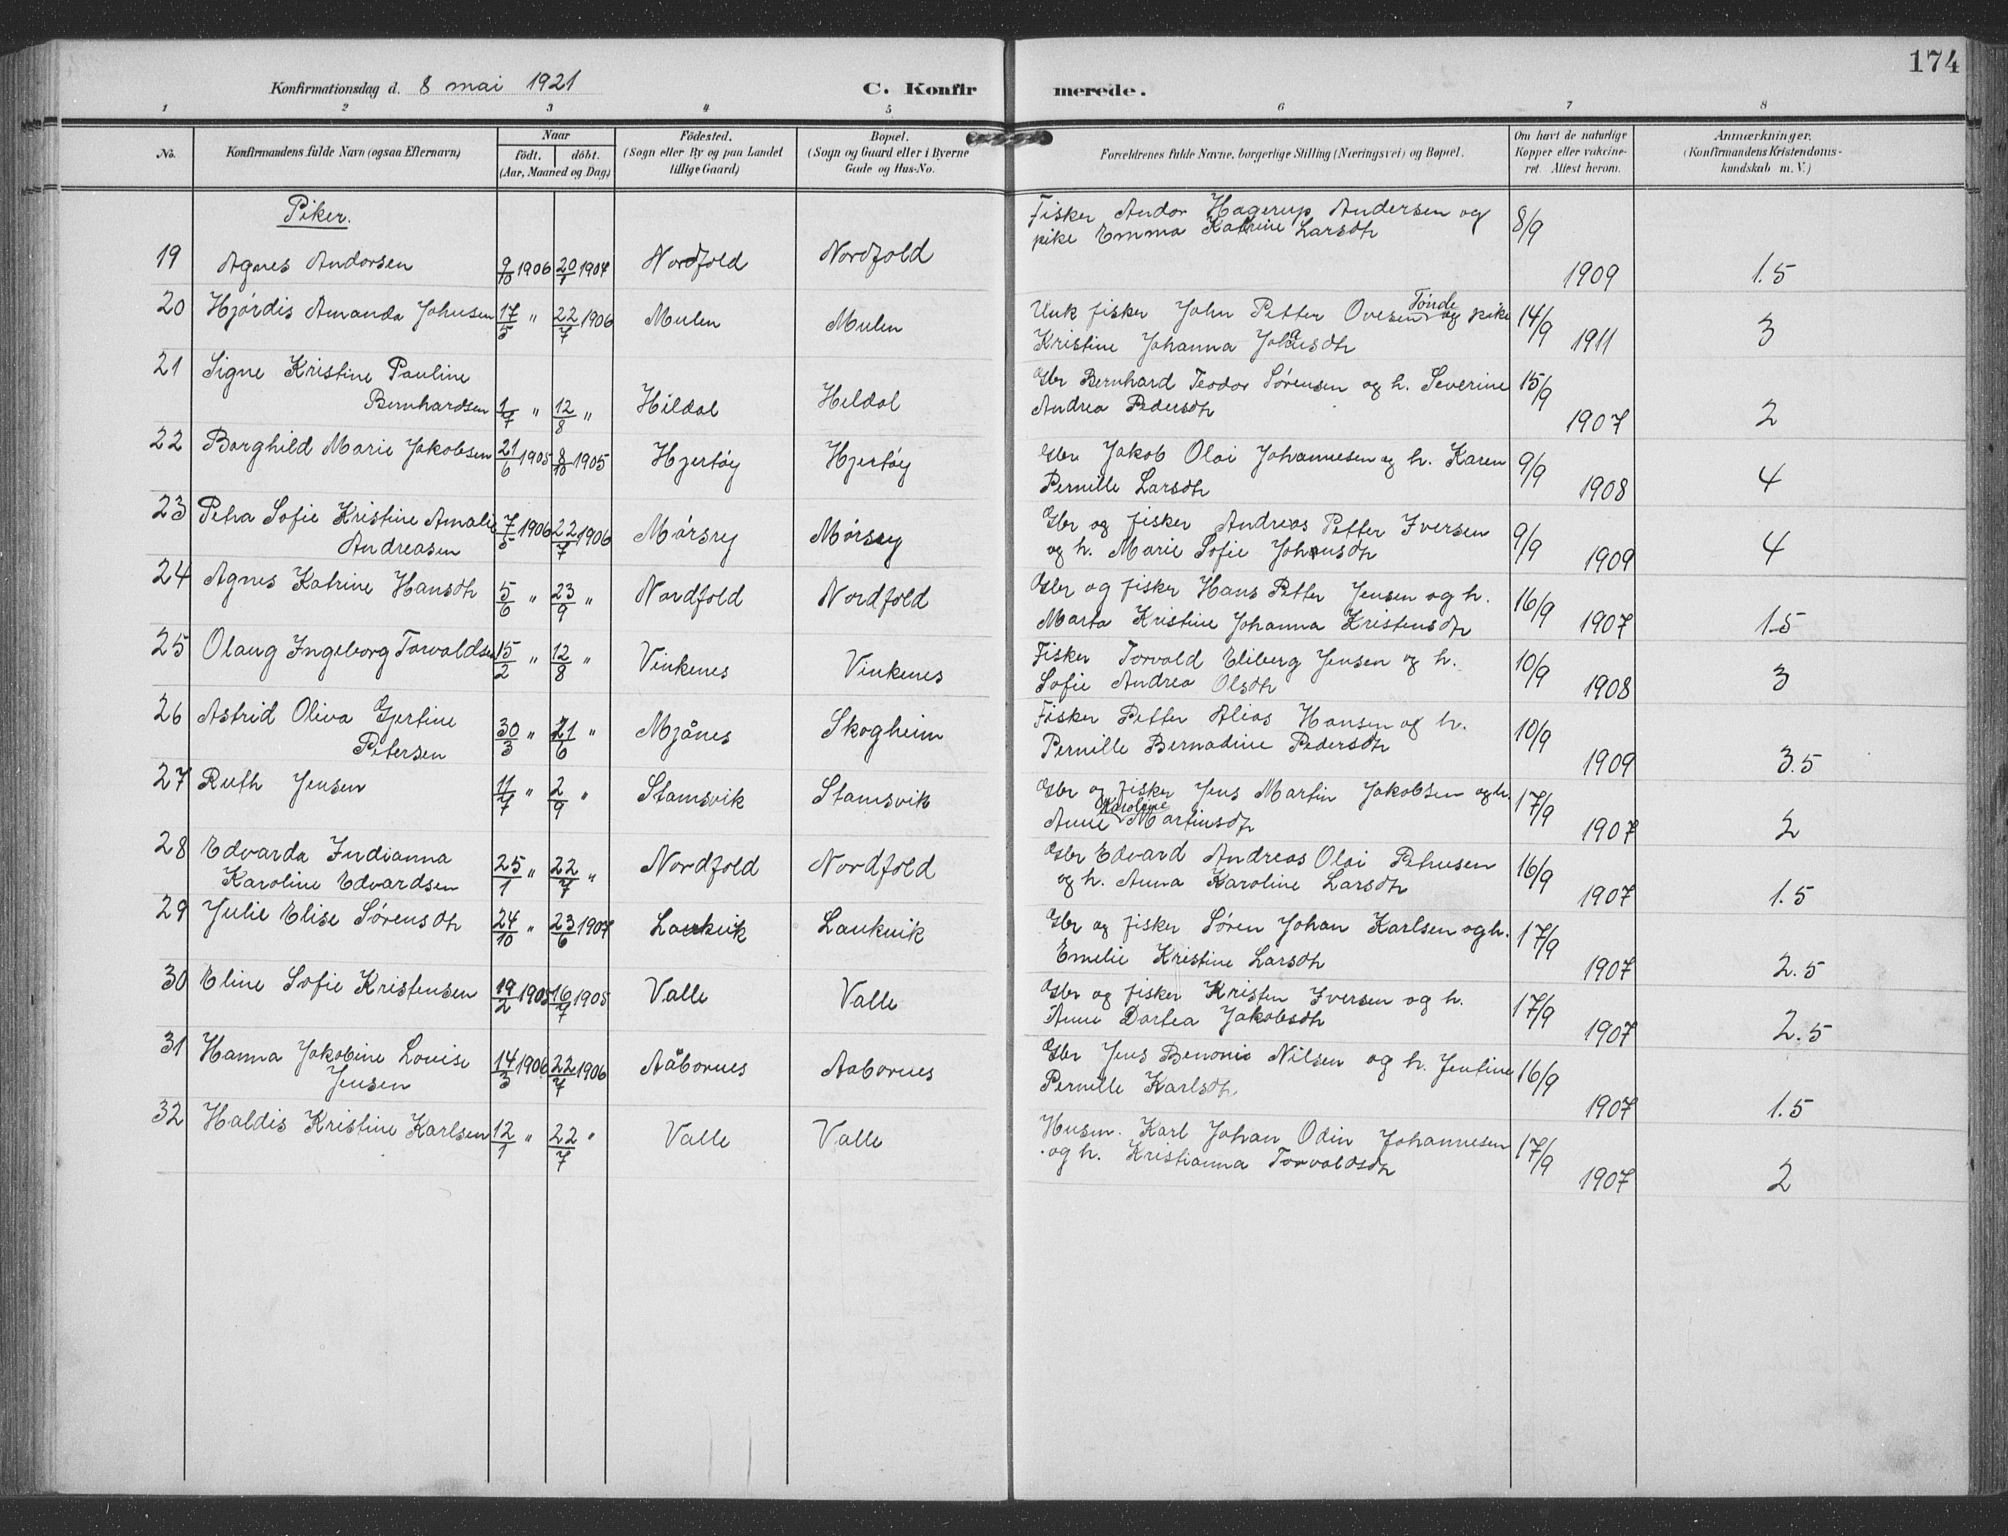 174
Konfirmationsdag d. 8 mai 1921 C. Konfir merede.
1 2 3 4 5 6 7 8
No. Konfirmandens fulde Navn (ogsaa Efternavn) Naar Födested. Bopæl. Forældrenes fulde Navne, borgerlige Stilling (Næringsvei) og Bopæl. Om havt de naturlige Anmærkninger.
födt. döbt. (Sogn eller By og paa Landet (Sogn og Gaard eller i Byerne Kopper eller vakcine- (Konfirmandens Kristendoms-
(Aar, Maaned og Dag) tillige Gaard) Gade og Hus-No. ret Attest herom. kundskab m. V.)
Piker.
Fisker Andor Hagerup Andersen og 8/9
pike Emma Katrine Larsdtr
19 Agnes Andorsen 9/10 1906 20/1 1907 Nordfold Nordfold 1909 1.5
20 Hjördis Amanda Johnsen 17/5 " 22/7 1906 Mulen Mulen Unk fisker John Petter Ovesen Tönde og pike 14/9
Kristine Johanna Johansdtr 1911 3
21 Signe Kristine Pauline Gbr Bernhard Teodor Sørensen og h. Severine 15/9
Bernhardsen 1/7 " 12/8 " Hildal Heldal Andrea Pedersdtr 1907 2
22 Borghild Marie Jakobsen 21/6 1905 8/10 1905 Hjertøy Hjertøy Gbr Jakob Olai Johannesen og h. Karen 9/9
Pernille Larsdtr 1908 4
23 Petra Sofie Kristine Amalie 7/5 1906 22/7 1906 Mörsry Mörsry Gbr og fisker Andreas Petter Iversen 9/9
Andreasen og h. Marie Sofie Johnsdtr 1909 4
24 Agnes Katrine Hansdtr 5/6 " 23/9 " Nordfold Nordfold Gbr og fisker Hans Petter Jensen og h. 16/9
Marta Kristine Johanna Kristensdtr 1907 1.5
25 Olaug Ingeborg Torvaldsen 15/2 " 12/8 " Vinkenes Vinkenes Fisker Torvald Eliberg Jensen og h. 10/9
Sofie Andrea Olsdtr 1908 3
26 Astrid Oliva Gjertine Fisker Petter Alias Hansen og h. 10/9
Petersen 30/3 " 21/6 " Mjånes Skogheim Pernille Bernadine Pedersdtr 1909 3.5
27 Ruth Jensen 11/7 " 2/9 " Stamsvik Stamsvik Gbr og fisker Jens Martin Jakobsen og h. 17/9
Anne Karoline Martinsdtr 1907 2
28 Edvarda Indianna Gbr Edvard Andreas Olai Petersen 16/9
Karoline Edvardsen 25/1 " 22/7 " Nordfold Nordfold og h. Anna Karoline Larsdtr 1907 1.5
29 Julie Elise Sørensdtr 24/10 " 23/6 1907 Laukvik Laukvik Gbr og fisker Søren Johan Karlsen og h. 17/9
Emelie Kristine Larsdtr 1907 2.5
30 Eline Sofie Kristensen 19/2 1905 16/9 1905 Valle Valle Gbr og fisker Kristen Iversen og h. 17/9
Anne Dortea Jakobsdtr 1907 2.5
31 Hanna Jakobine Lovise Gbr Jens Benoni Nilsen og h. Jentine 16/9
Jensen 14/3 1906 22/7 1906 Aåbornes Aabornes Pernille Karlsdtr. 1907 1.5
32 Haldis Kristine Karlsen 12/1 " 22/7 " Valle Valle Husm. Karl Johan Odin Johannesen
og h. Kristianna Torvaldsdtr 17/9 1907 2